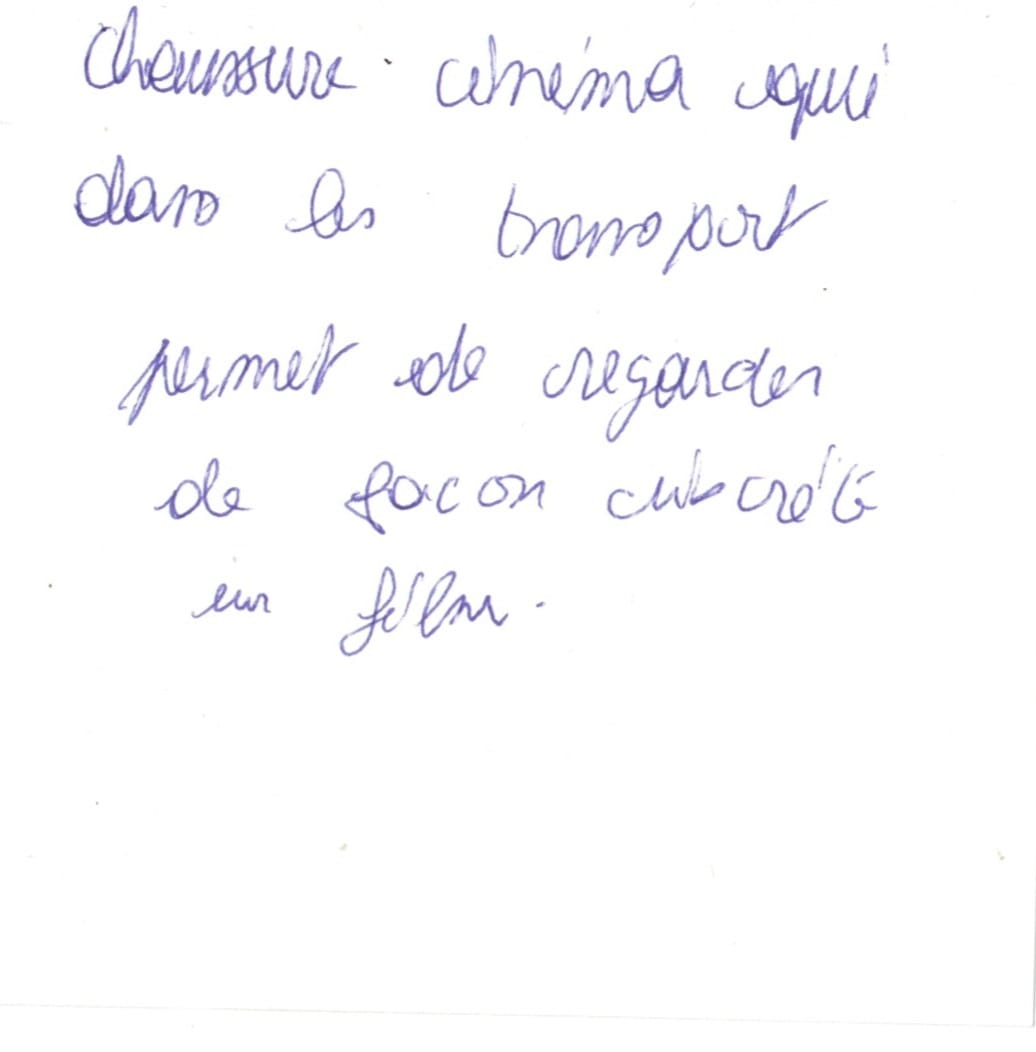 Chaussure cinéma qui
dans les transport
permet de regarder
de facon discrète
un film.